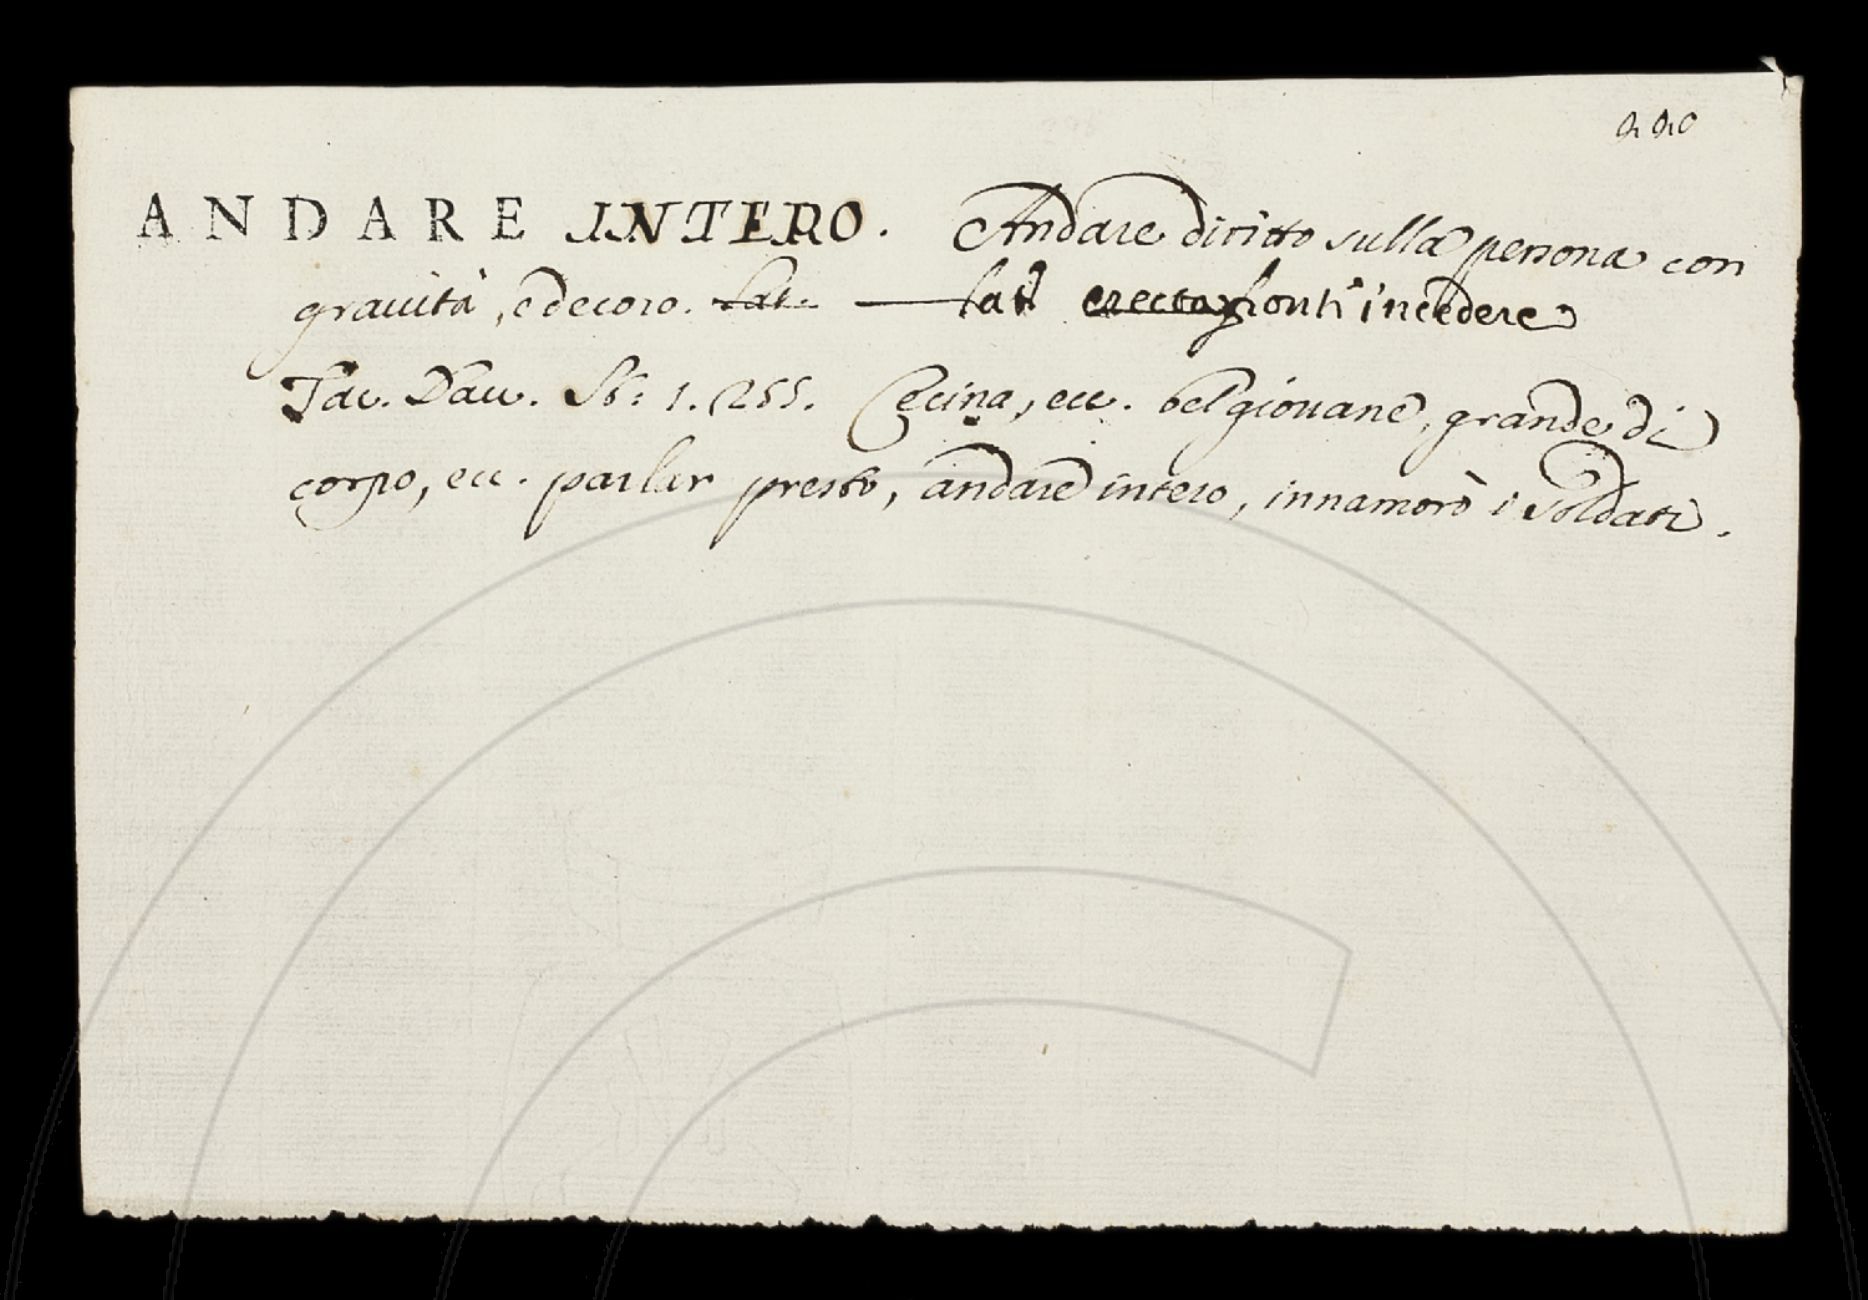 ANDARE INTERO. Andare diritto sulla persona con
gravità, e decoro. Lat. lat. erecta fronti incedere
Tac. Dav. St: 1. 255. Cecina, ecc. bel giovane, grande di
corpo, ecc. parlar presto, andare intero, innamorò i soldati.